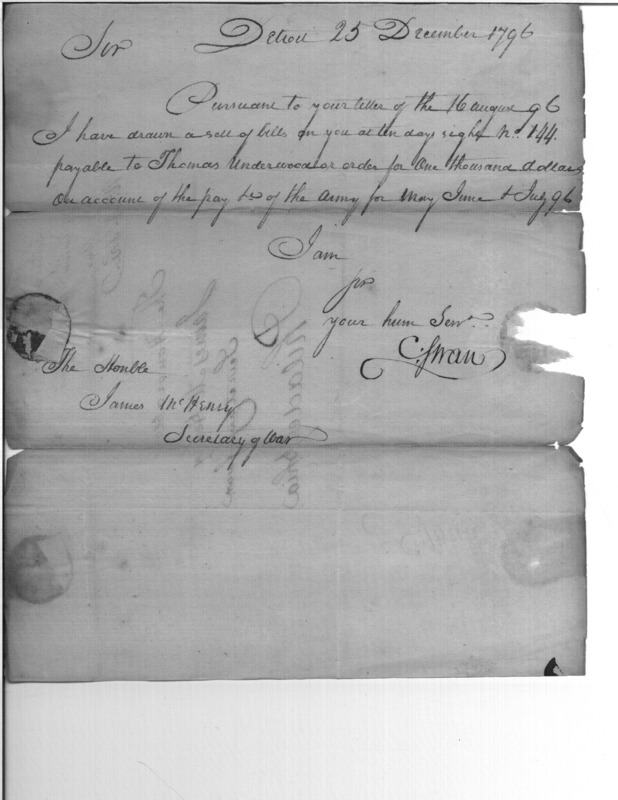 Sir Detroit 25 December 1796
Pursuant to your letter of the 16 august 96
I have drawn a sett of bills on you at ten days sight No. 144.
payable to Thomas Underwood or order for One thousand dollars
On account of the pay &c of the Army for May June & July 96
I am
Your hum Servt.
C: Swan
The Honble
James McHenry
Secretary of War